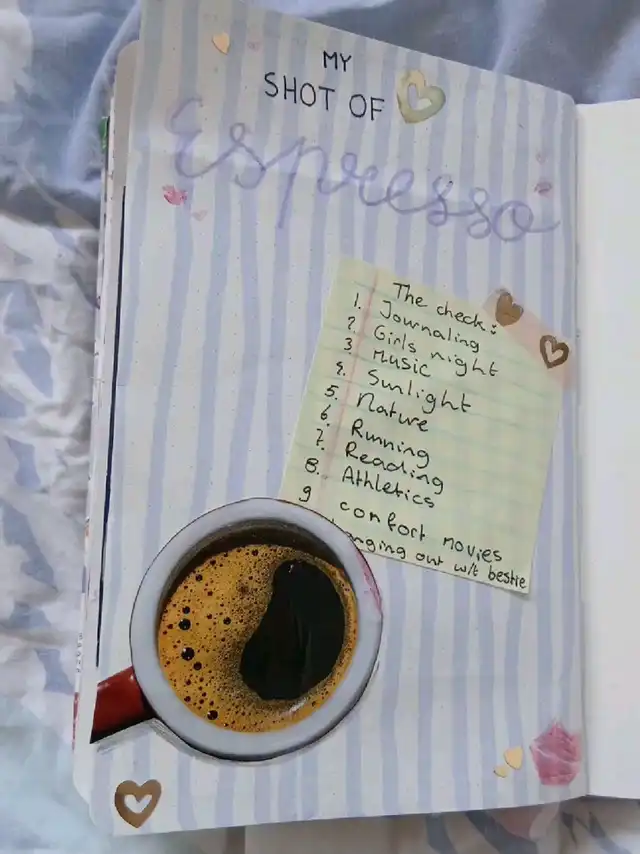 MY
SHOT OF
Espresso
The check:
1. Journaling
2. Girls night
3. Music
4. Sunlight
5. Nature
6. Running
7. Reading
8. Athletics
9 comfort movies
out wit bestie